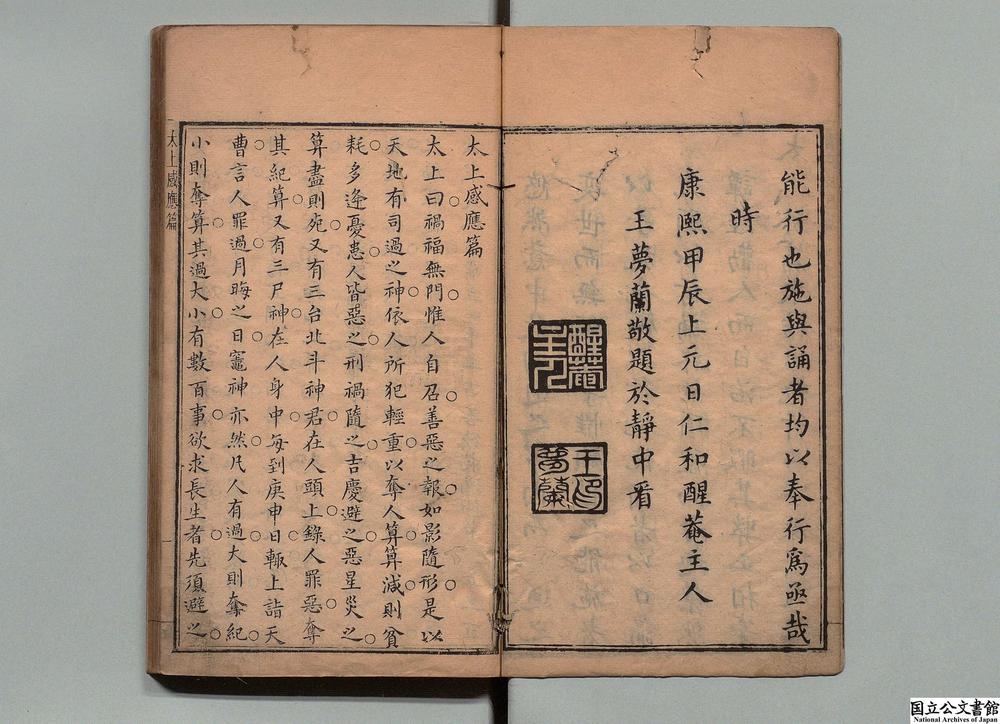 能行也施與誦者均以奉行爲亟哉
時
康熙甲辰上元日仁和醒菴主人
王夢蘭敬題於靜中看
醒菴主人
王印夢蘭
太上感應篇
太上曰禍福無門惟人自召善惡之報如影隨形是以
天地有司過之神依人所犯輕重以奪人算算減則貧
耗多逢憂患人皆惡之刑禍隨之吉慶避之惡星災之
算盡則死又有三台北斗神君在人頭上錄人罪惡奪
其紀算又有三尸神在人身中每到庚申日輙上詣天
曹言人罪過月晦之日竈神亦然凡人有過大則奪紀
小則奪算其過大小有數百事欲求長生者先須避之
太上感應篇
国立公文書館
National Archives of Japan